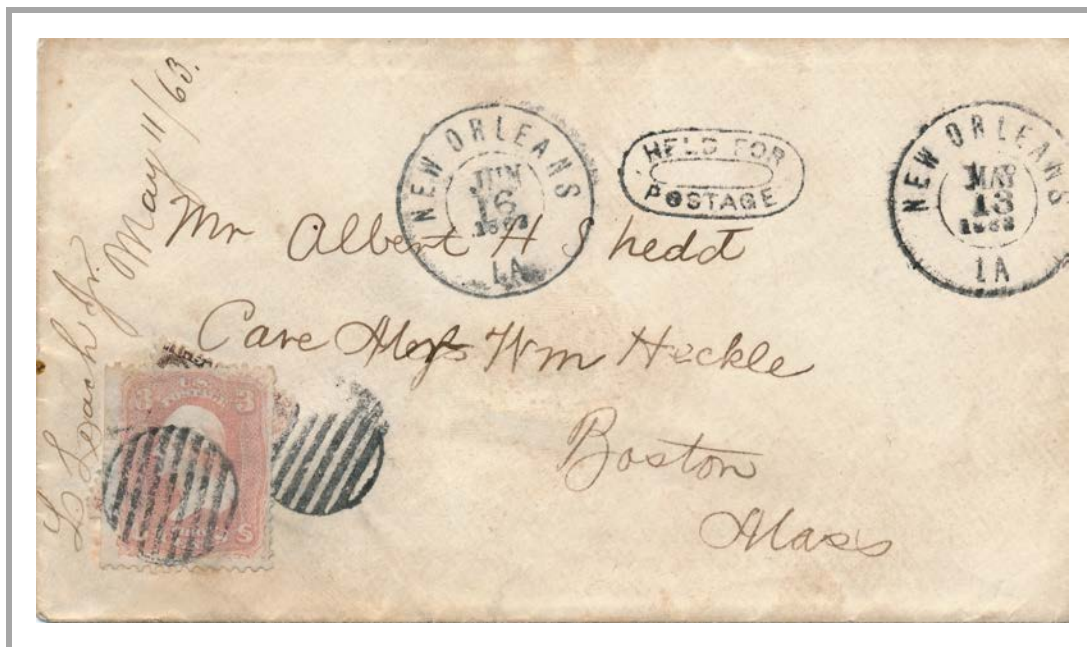 May 11/63.
NEW ORLEANS
JUN
16
1863
LA
HELD FOR
POSTAGE
NEW ORLEANS
MAY
13
1863
LA
Mr Albert H Shedd
Care Wm Heckle
Boston
Mass
Jr.
U.S.
POSTAGE
3 3
S